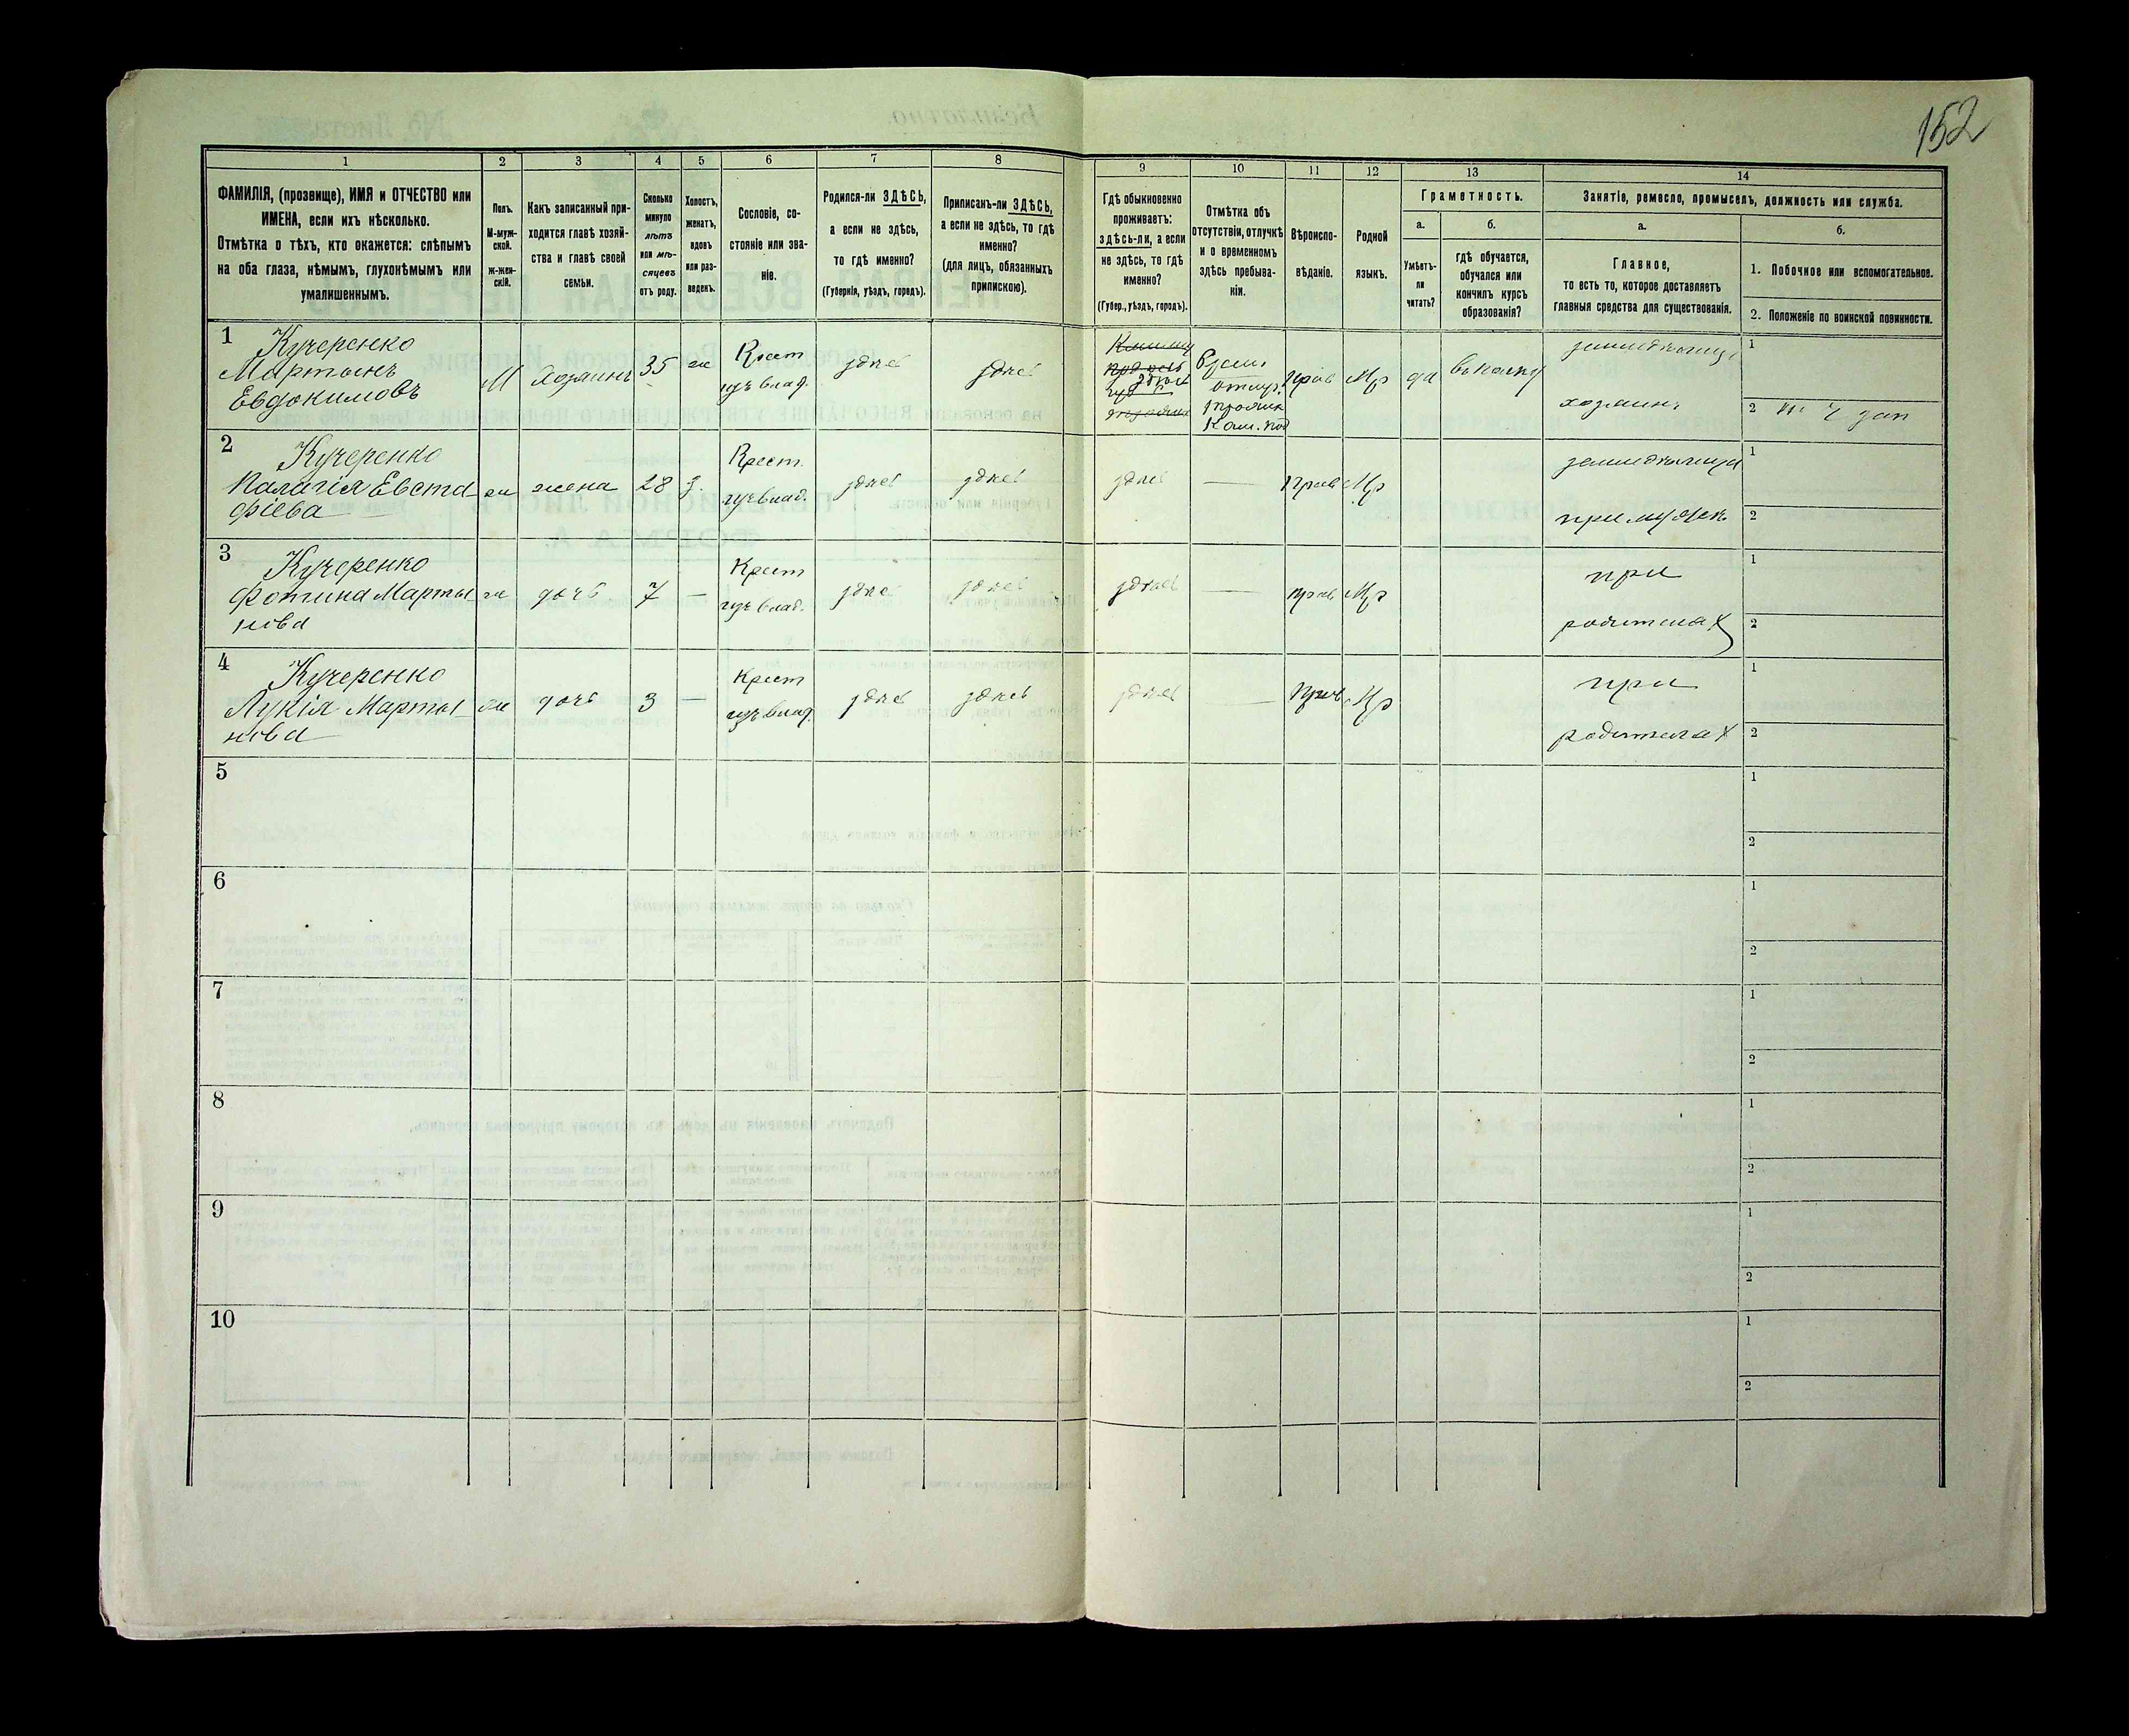 152
1
2
3
4
5
6
7
8
9
10
11
12
13
14
ФАМИЛІЯ, (прозвище), ИМЯ и ОТЧЕСТВО или
ИМЕНА, если ихъ нѣсколько.
Отмѣтка о тѣхъ, кто окажется: слѣпымъ
на оба глаза, нѣмымъ, глухонѣмымъ или
умалишеннымъ.
Полъ.
М-муж-
ской.
ж-жен-
скій.
Какъ записанный при-
ходится главѣ хозяй-
ства и главѣ своей
семьи.
Сколько
минуло
лѣтъ
или мѣ-
сяцевъ
отъ роду.
Холостъ,
женатъ,
вдовъ
или раз-
веденъ.
Сословіе, со-
стояніе или зва-
ніе.
Родился-ли ЗДѢСЬ,
а если не здѣсь,
то гдѣ именно?
(Губернія, уѣздъ, городъ).
Приписанъ-ли ЗДѢСЬ,
а если не здѣсь, то гдѣ
именно?
(для лицъ, обязанныхъ
припискою).
Гдѣ обыкновенно
проживаетъ:
здѣсь-ли, а если
не здѣсь, то гдѣ
именно?
(Губер., уѣздъ, городъ).
Отмѣтка объ
отсутствіи, отлучкѣ
и о временномъ
здѣсь пребыва-
ніи.
Вѣроиспо-
вѣданіе.
Родной
языкъ.
Граметность.
а.
Умѣетъ-
ли
читать?
б.
гдѣ обучается,
обучался или
кончилъ курсъ
образованія?
Занятіе, ремесло, промыселъ, должность или служба.
а.
Главное,
то есть то, которое доставляетъ
главныя средства для существованія.
б.
1. Побочное или вспомогательное.
2. Положеніе по воинской повинности.
1
Кучеренко
Мартынъ
Евдокимовъ
М
Хозяинъ
35
ж
Крест
изъ влад.
здѣсь
здѣсь
здѣсь
Врем.
отлуч.
прав
Мр
да
земледѣлецъ
хозяинъ
1
2
2
Кучеренко
Палагія Евста
фіева
ж
жена
28
з.
Крест.
изъ влад.
здѣсь
здѣсь
здѣсь
—
прав
Мр
при мужѣ
1
2
3
Кучеренко
Фотина Марты
нова
ж
дочь
7
—
Крест
изъ влад.
здѣсь
здѣсь
здѣсь
—
прав
Мр
при
родителях
1
2
4
Кучеренко
Лукія Марты
нова
ж
дочь
3
—
Крест
изъ влад.
здѣсь
здѣсь
здѣсь
—
Прав
Мр
при
родителях
1
2
5
1
2
6
1
2
7
1
2
8
1
2
9
1
2
10
1
2